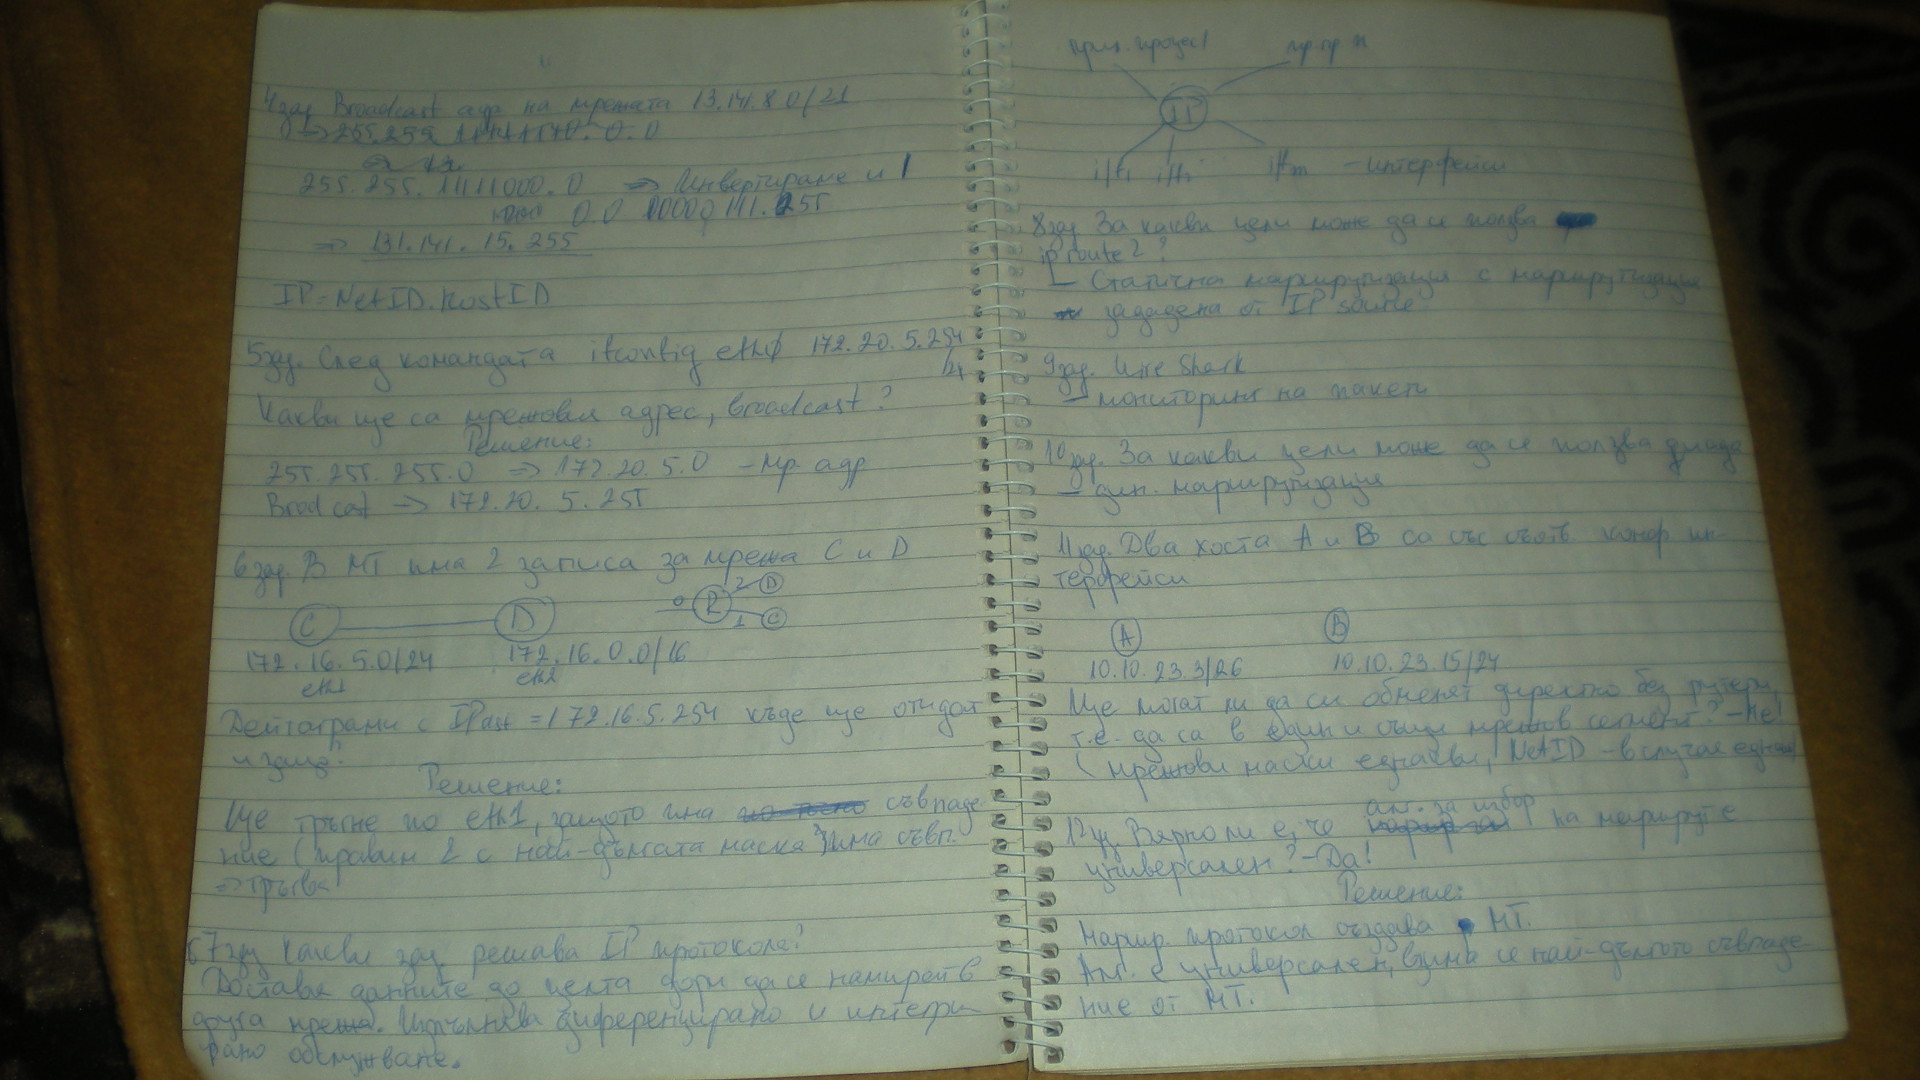 4 зад. Broadcast адр на мрежата 13.141.8.0/21
255.255.11111000.0 => Инвертиране и
0.0.00000111.255
=> 131.141.15.255
IP = NetID.HostID
5 зад. След командата ifconfig eth0 172.20.5.254
/24
Какви ще са мрежовия адрес, broadcast?
Решение:
255.255.255.0 => 172.20.5.0 - мр. адр
Brodcast -> 172.20.5.255
6 зад. В МТ има 2 записа за мрежа C и D
C D 0 R 2 D 1 C
172.16.5.0/24 172.16.0.0/16
eth1 eth2
Дейтаграми с IPdst = 172.16.5.254 къде ще отидат
и защо?
Решение:
Ще тръгне по eth1, защото има съвпаде-
ние (правим & с най-дългата маска има съвп.
=> тръгва
7 зад Какви зад решава IP протокола?
Доставя данните до целта дори да се намират в
друга мрежа. Изпълнява диференцирано и интегри-
рано обслужване.
прил. процес 1 пр. пр n
IP
i/f1 i/fm - интерфейси
8 зад За какви цели може да се ползва
ip route2?
- Статична маршрутизация с маршрутизация
зададена от IP source
9 зад. Wire Shark
- мониторинг на пакети
10 зад. За какви цели може да се ползва
- дин. маршрутизация
11 зад. Два хоста A и B са със съотв. конф ин-
терфейси
A B
10.10.23.3/26 10.10.23.15/24
Ще могат ли да си обменят директно без рутери,
т.е. да са в един и същи мрежов сегмент? - Не!
(мрежови маски еднакви, NetID - в случая еднакви)
алг. за избор
12 зад. Вярно ли е, че на маршрут е
универсален? - Да!
Решение:
Маршр. протокол създава МТ.
Алг. е универсален, взима се най-дългото съвпаде-
ние от МТ.